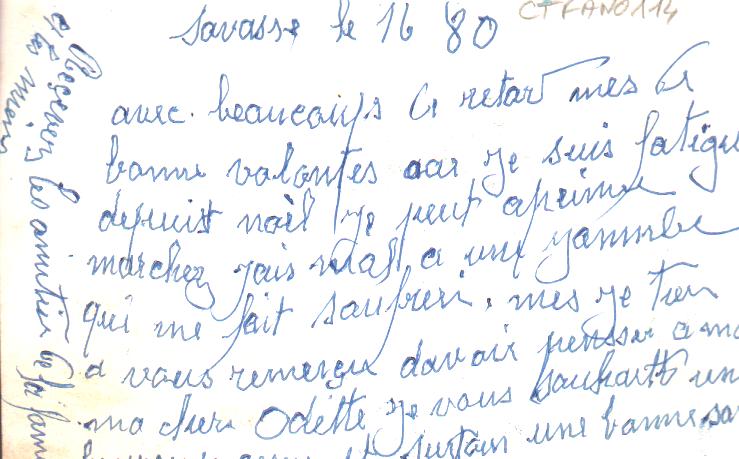 CTFAN0114
Savasse le 16 80
avec beaucoups de retar mes de
bonne volontes car je suis fatigue
depuist noël je peut apeime
marchez jais mal a une jammbe
qui me fait soufreri. mes je tien
a vous remerçie davoir pensser a mo
ma cher Odette je vous souhaitte un
surtout une bonne san
et Recever les amitier de la fami
les miens